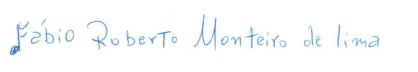 Fábio Roberto Monteiro de lima